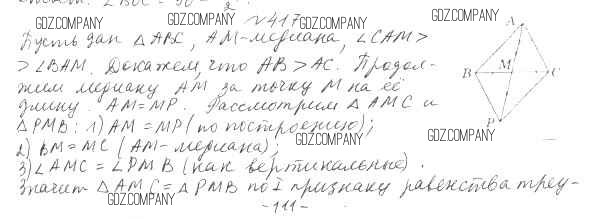 GDZ.COMPANY
№417 GDZ.COMPANY
GDZ.COMPANY
Пусть дан △ABC, AM-медиана, ∠CAM >
> ∠BAM. Докажем, что AB > AC. Продол-
жим медиану AM за точку M на её
длину. AM=MP. Рассмотрим △AMC и
△PMB: 1) AM = MP (по построению);
GDZ.COMPANY
GDZ.COMPANY
2) BM = MC (AM-медиана);
3) ∠AMC = ∠PMB (как вертикальные).
GDZ.COMPANY
Значит △AMC = △PMB по I признаку равенства треу-
GDZ.COMPANY
-111-
A
B M C
P